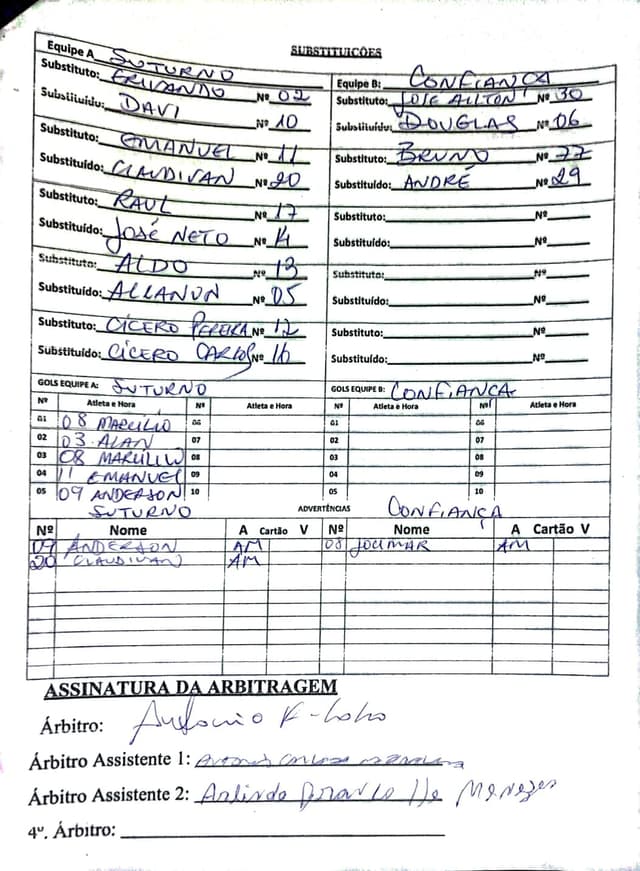 SUBSTITUIÇÕES
Equipe A SUTURNO
Substituto: ERIVANDO Nº 02
Substituído: DAVI Nº 10
Substituto: EMANUEL Nº 11
Substituído: CLAUDIVAN Nº 20
Substituto: RAUL Nº 17
Substituído: JOSÉ NETO Nº 14
Substituto: ALDO Nº 13
Substituído: Nº 05
Substituto: CÍCERO PEREIRA Nº 12
Substituído: CÍCERO CARLOS Nº 16
Equipe B: CONFIANÇA
Substituto: JOSE AILTON Nº 30
Substituído: DOUGLAS Nº 06
Substituto: BRUNO Nº 77
Substituído: ANDRÉ Nº 29
Substituto: Nº
Substituído: Nº
Substituto: Nº
Substituído: Nº
Substituto: Nº
Substituído: Nº
GOLS EQUIPE A: SUTURNO GOLS EQUIPE B: CONFIANÇA
Nº Atleta e Hora Nº Atleta e Hora Nº Atleta e Hora Nº Atleta e Hora
01 08 MARCÍLIO 06 01 06
02 03 ALAN 07 02 07
03 08 MARCÍLIO 08 03 08
04 11 EMANUEL 09 04 09
05 09 ANDERSON 10 05 10
SUTURNO ADVERTÊNCIAS CONFIANÇA
Nº Nome A Cartão V Nº Nome A Cartão V
09 ANDERSON AM 08 JOCIMAR AM
20 CLAUDIVAN AM
ASSINATURA DA ARBITRAGEM
Árbitro: Antonio
Árbitro Assistente 1:
Árbitro Assistente 2: Arlindo De Menezes
4º. Árbitro: